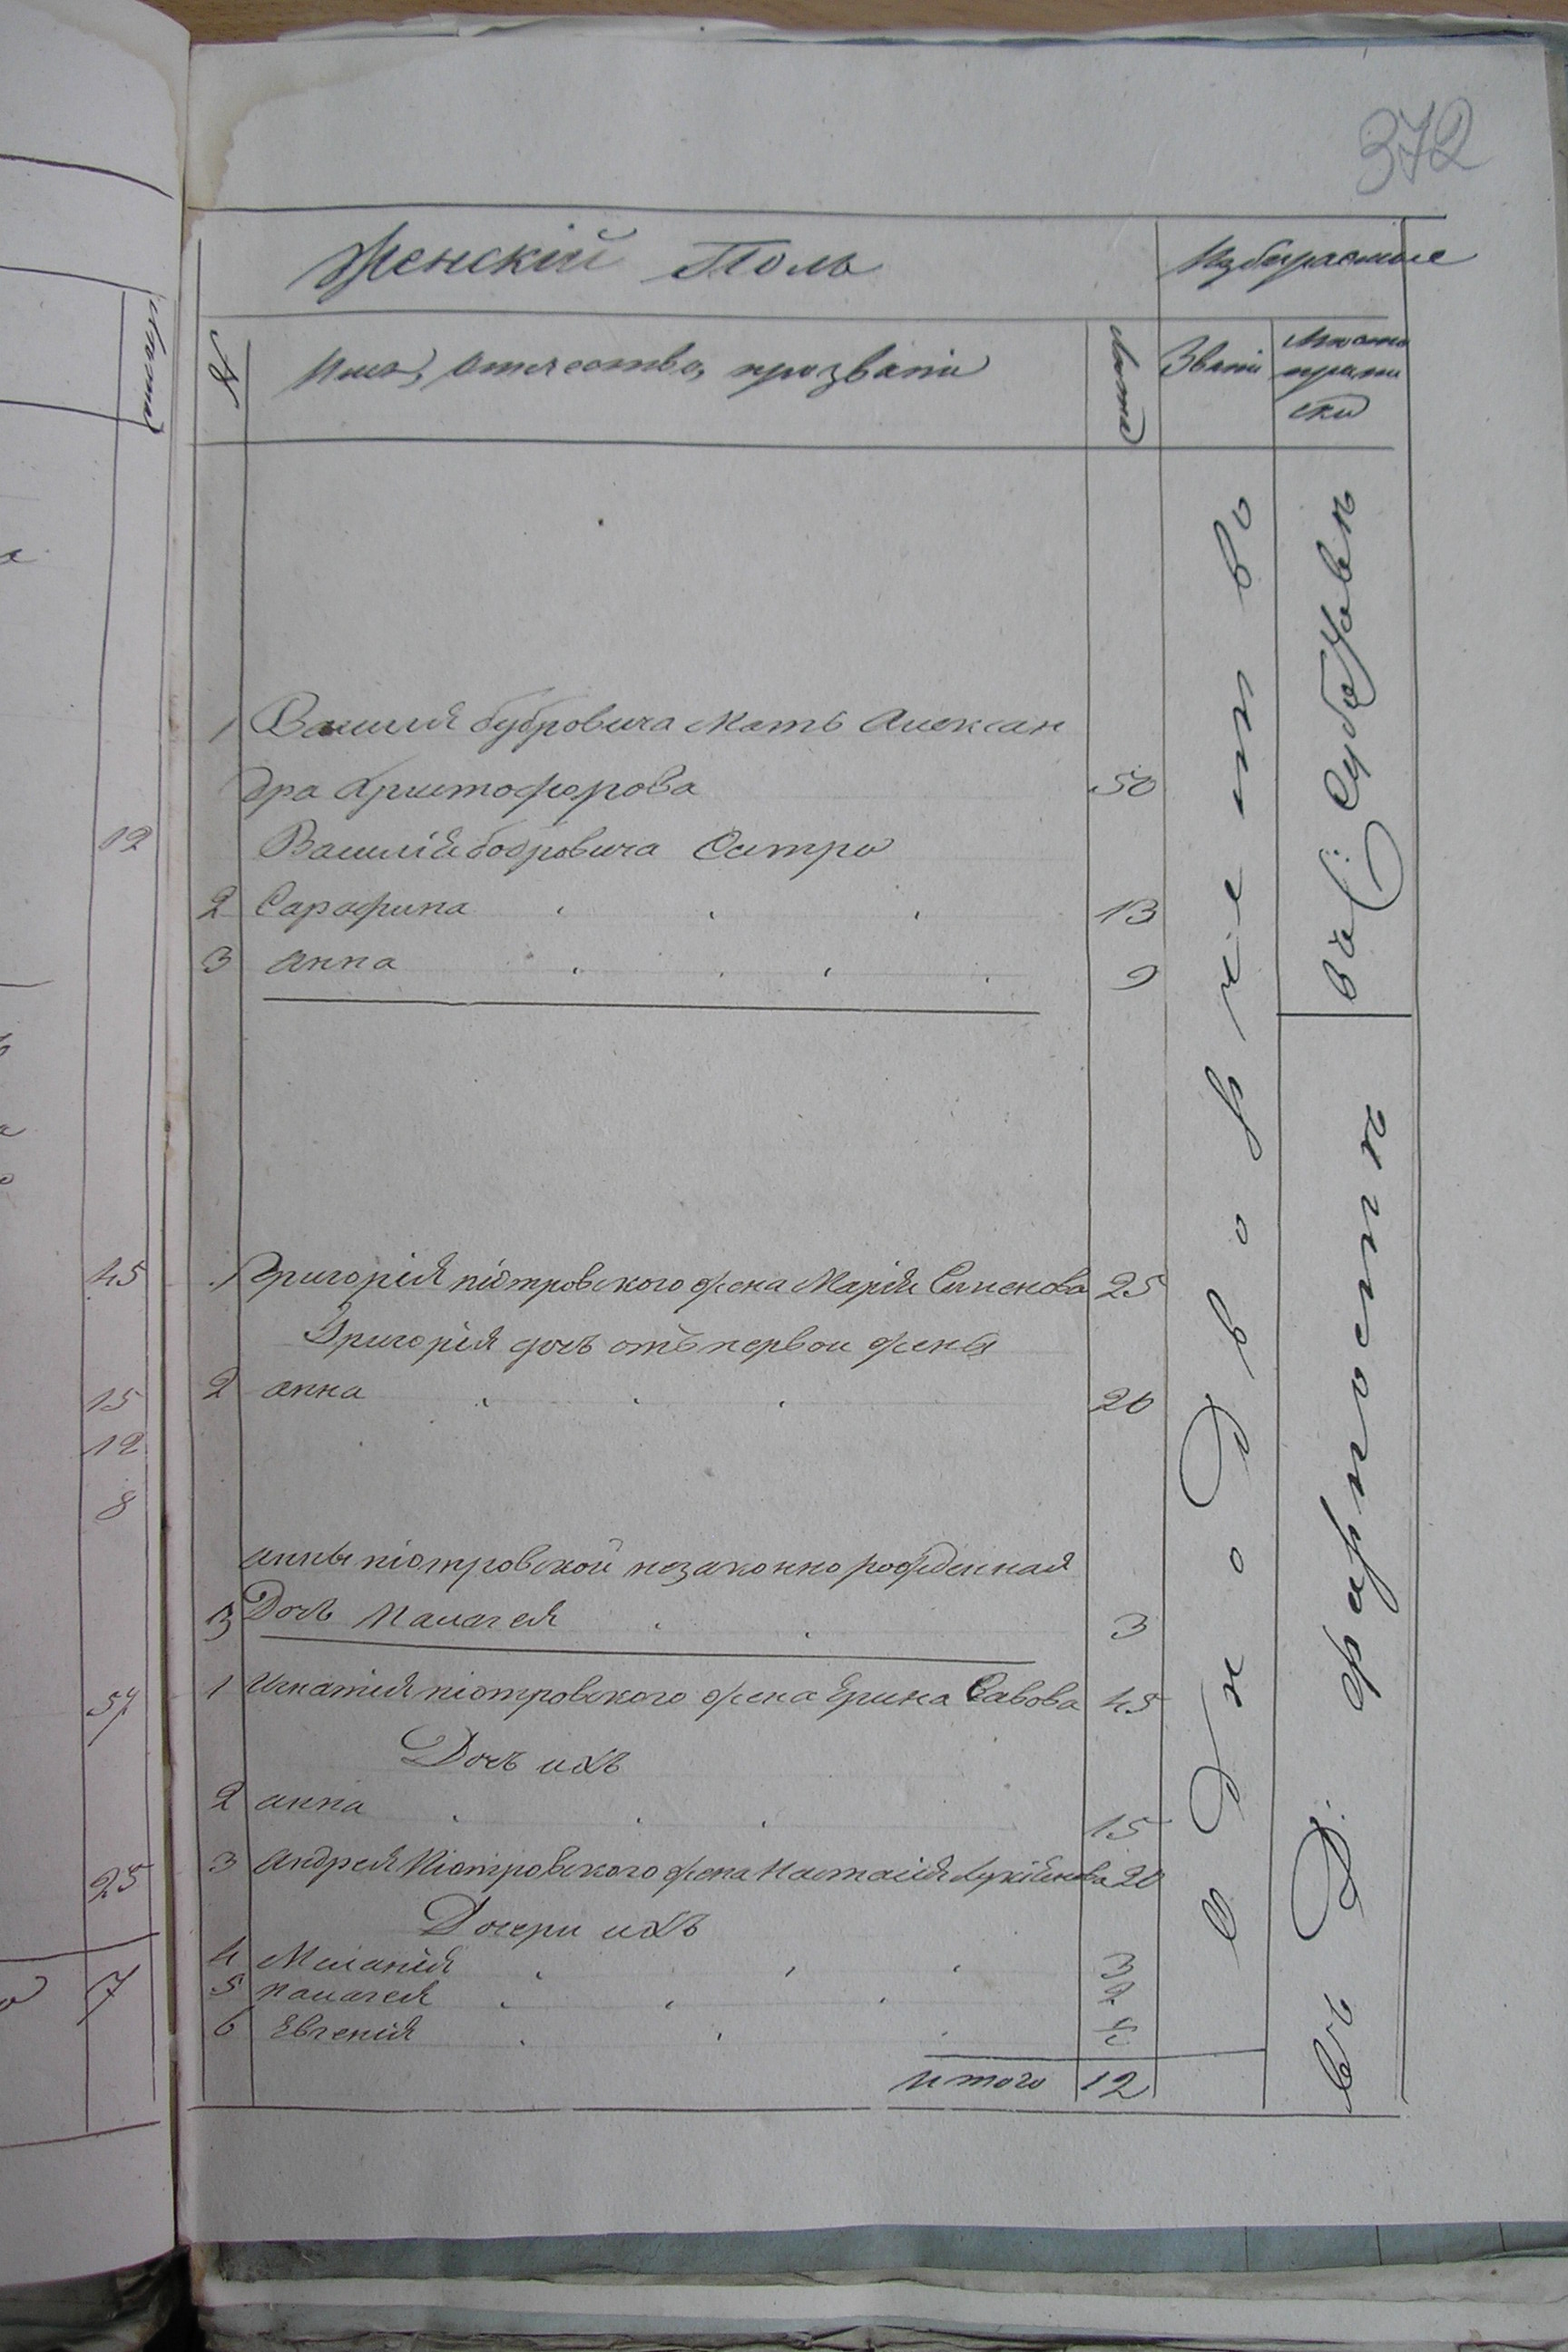 372
Женскій Полъ
Избираемые
№
Имя, отчество, прозваніе
Лѣта
Званіе
Место
припи
ски
1 Василія бубровича Мать Алексан
дра Христофорова 50
Василія бобровича Сестры
2 Сарафина 13
3 анна 9
1 Григорія піотровского жена Марія Семенова 25
Григорія дочъ отъ первои жены
2 анна 20
анны піотровской незаконно рожденная
3 Дочъ Палагея 3
1 Игнатія піотровского жена Ерина Савова 45
Дочъ ихъ
2 анна 15
3 андрея Піотровского жена Настасія Лукіянова 20
Дочери ихъ
4 Меланія 3
5 палагея 2
6 Евгенія
итого 12
однодворчество
въ Д:
12
45
15
12
8
57
25
7